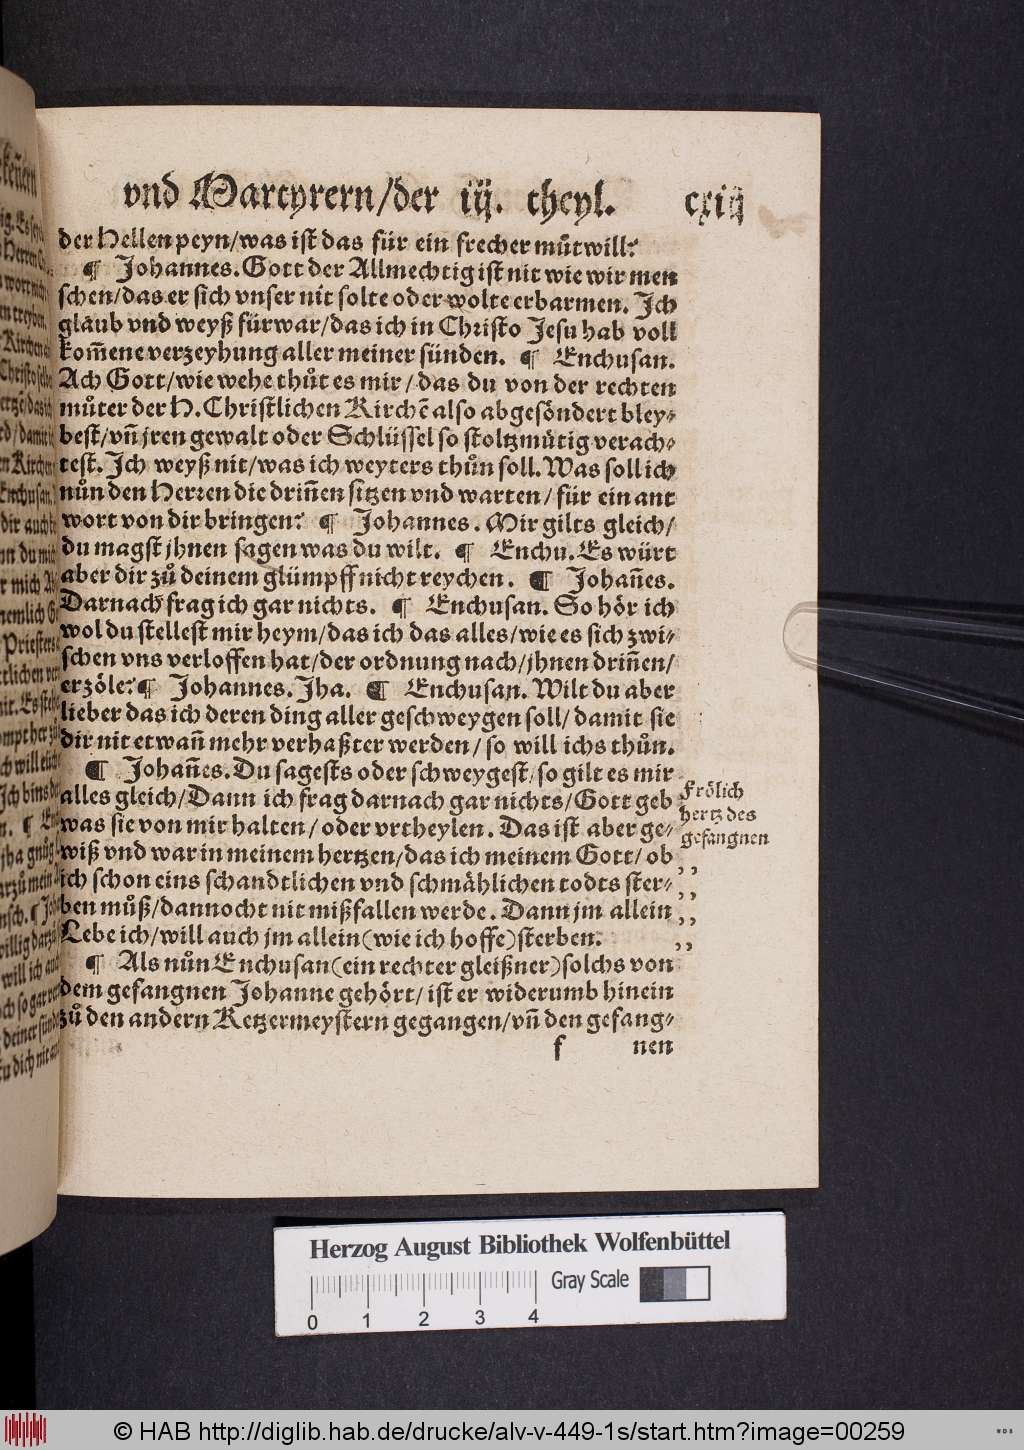 vnd Martyrern/der iij. theyl. cxiij
der Hellen peyn/was ist das für ein frecher můtwill?
¶ Johannes. Gott der Allmechtig ist nit wie wir men
schen/das er sich vnser nit solte oder wolte erbarmen. Ich
glaub vnd weyß fürwar/das ich in Christo Jesu hab voll
kom̃ene verzeyhung aller meiner sünden. ¶ Enchusan.
Ach Gott/wie wehe thůt es mir/das du von der rechten
můter der H. Christlichen Kirchẽ also abgesöndert bley⸗
best/vñ jren gewalt oder Schlüssel so stoltzmütig verach⸗
test. Ich weyß nit/was ich weyters thůn soll. Was soll ich
nůn den Herꝛen die driñen sitzen vnd warten/für ein ant
wort von dir bringen? ¶ Johannes. Mir gilts gleich/
du magst jhnen sagen was du wilt. ¶ Enchu. Es würt
aber dir zů deinem glümpff nicht reychen. ¶ Johañes.
Darnach frag ich gar nichts. ¶ Enchusan. So hör ich
wol du stellest mir heym/das ich das alles/wie es sich zwi⸗
schen vns verloffen hat/der ordnung nach/jhnen driñen/
erzöle? ¶ Johannes. Jha. ¶ Enchusan. Wilt du aber
lieber das ich deren ding aller geschweygen soll/damit sie
dir nit etwañ mehr verhaßter werden/so will ichs thůn.
¶ Johañes. Du sagests oder schweygest/so gilt es mir
alles gleich/Dann ich frag darnach gar nichts/Gott geb
was sie von mir halten/oder vrtheylen. Das ist aber ge⸗
wiß vnd war in meinem hertzen/das ich meinem Gott/ob
ich schon eins schandtlichen vnd schmählichen todts ster⸗
ben můß/dannocht nit mißfallen werde. Dann jm allein
Lebe ich/will auch jm allein (wie ich hoffe) sterben.
¶ Als nůn Enchusan (ein rechter gleißner) solchs von
dem gefangnen Johanne gehört/ist er widerumb hinein
zů den andern Ketzermeystern gegangen/vñ den gefang⸗
f nen
Frölich
hertz des
gefangnen
Herzog August Bibliothek Wolfenbüttel
Gray Scale
0 1 2 3 4
© HAB http://diglib.hab.de/drucke/alv-v-449-1s/start.htm?image=00259